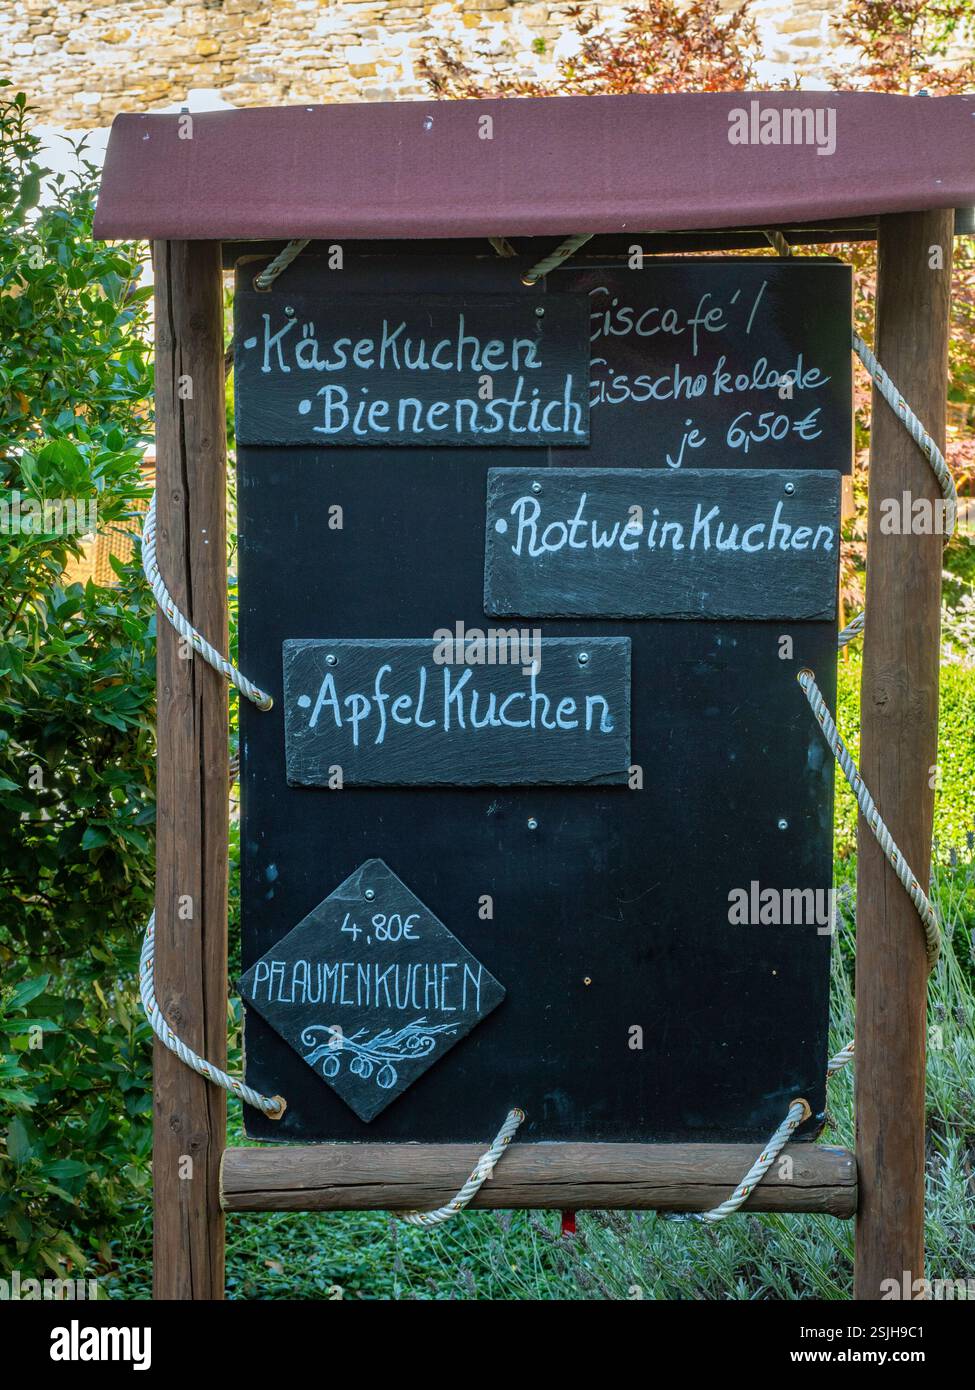 •KäseKuchen
•Bienenstich
Eiscafé /
Eisschokolade
je 6,50€
•RotweinKuchen
•ApfelKuchen
4,80€
PFLAUMENKUCHEN
alamy
Image ID: 2SJH9C1
www.alamy.com